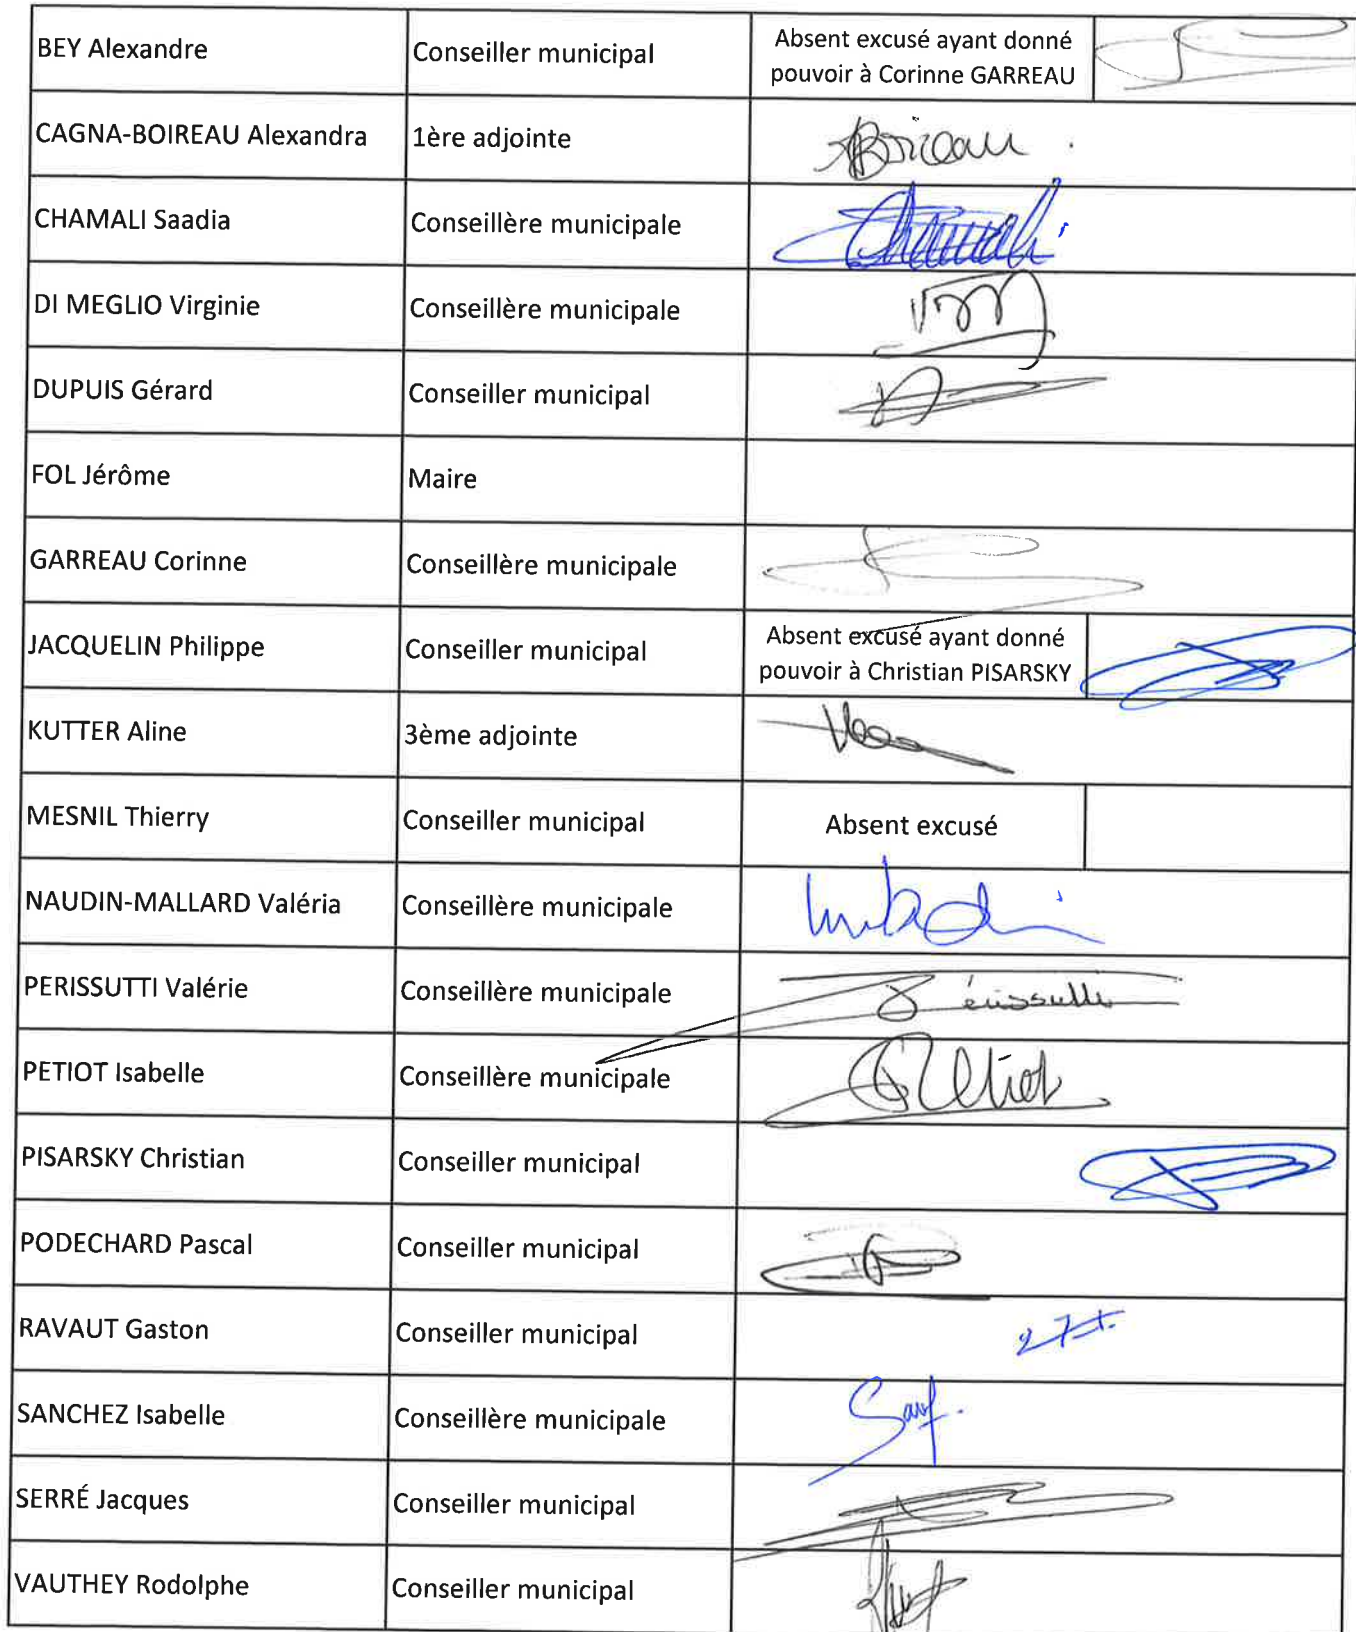 BEY Alexandre Conseiller municipal Absent excusé ayant donné
pouvoir à Corinne GARREAU
CAGNA-BOIREAU Alexandra 1ère adjointe ABoireau
CHAMALI Saadia Conseillère municipale Chamali
DI MEGLIO Virginie Conseillère municipale
DUPUIS Gérard Conseiller municipal
FOL Jérôme Maire
GARREAU Corinne Conseillère municipale
JACQUELIN Philippe Conseiller municipal Absent excusé ayant donné
pouvoir à Christian PISARSKY
KUTTER Aline 3ème adjointe
MESNIL Thierry Conseiller municipal Absent excusé
NAUDIN-MALLARD Valéria Conseillère municipale
PERISSUTTI Valérie Conseillère municipale
PETIOT Isabelle Conseillère municipale
PISARSKY Christian Conseiller municipal
PODECHARD Pascal Conseiller municipal
RAVAUT Gaston Conseiller municipal
SANCHEZ Isabelle Conseillère municipale
SERRÉ Jacques Conseiller municipal
VAUTHEY Rodolphe Conseiller municipal